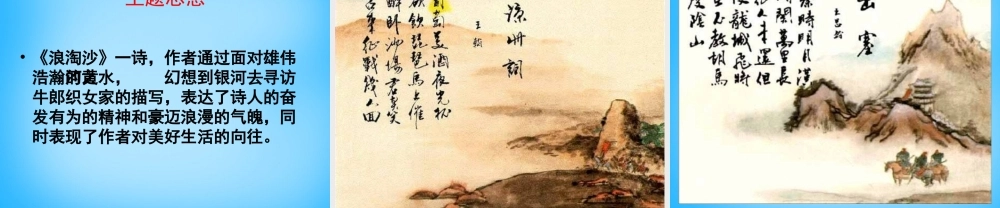 主题思想
• 《浪淘沙》一诗，作者通过面对雄伟
浩瀚的黄水，幻想到银河去寻访
牛郎织女家的描写，表达了诗人的奋
发有为的精神和豪迈浪漫的气魄，同
时表现了作者对美好生活的向往。
凉州词
王翰
萄美酒夜光杯
欲饮琵琶马上催
醉卧沙场君莫笑
古来征战几人回
塞
王昌龄
秦时明月汉
时关万里长
征人未还但
使龙城飞将
在不教胡马
度阴山